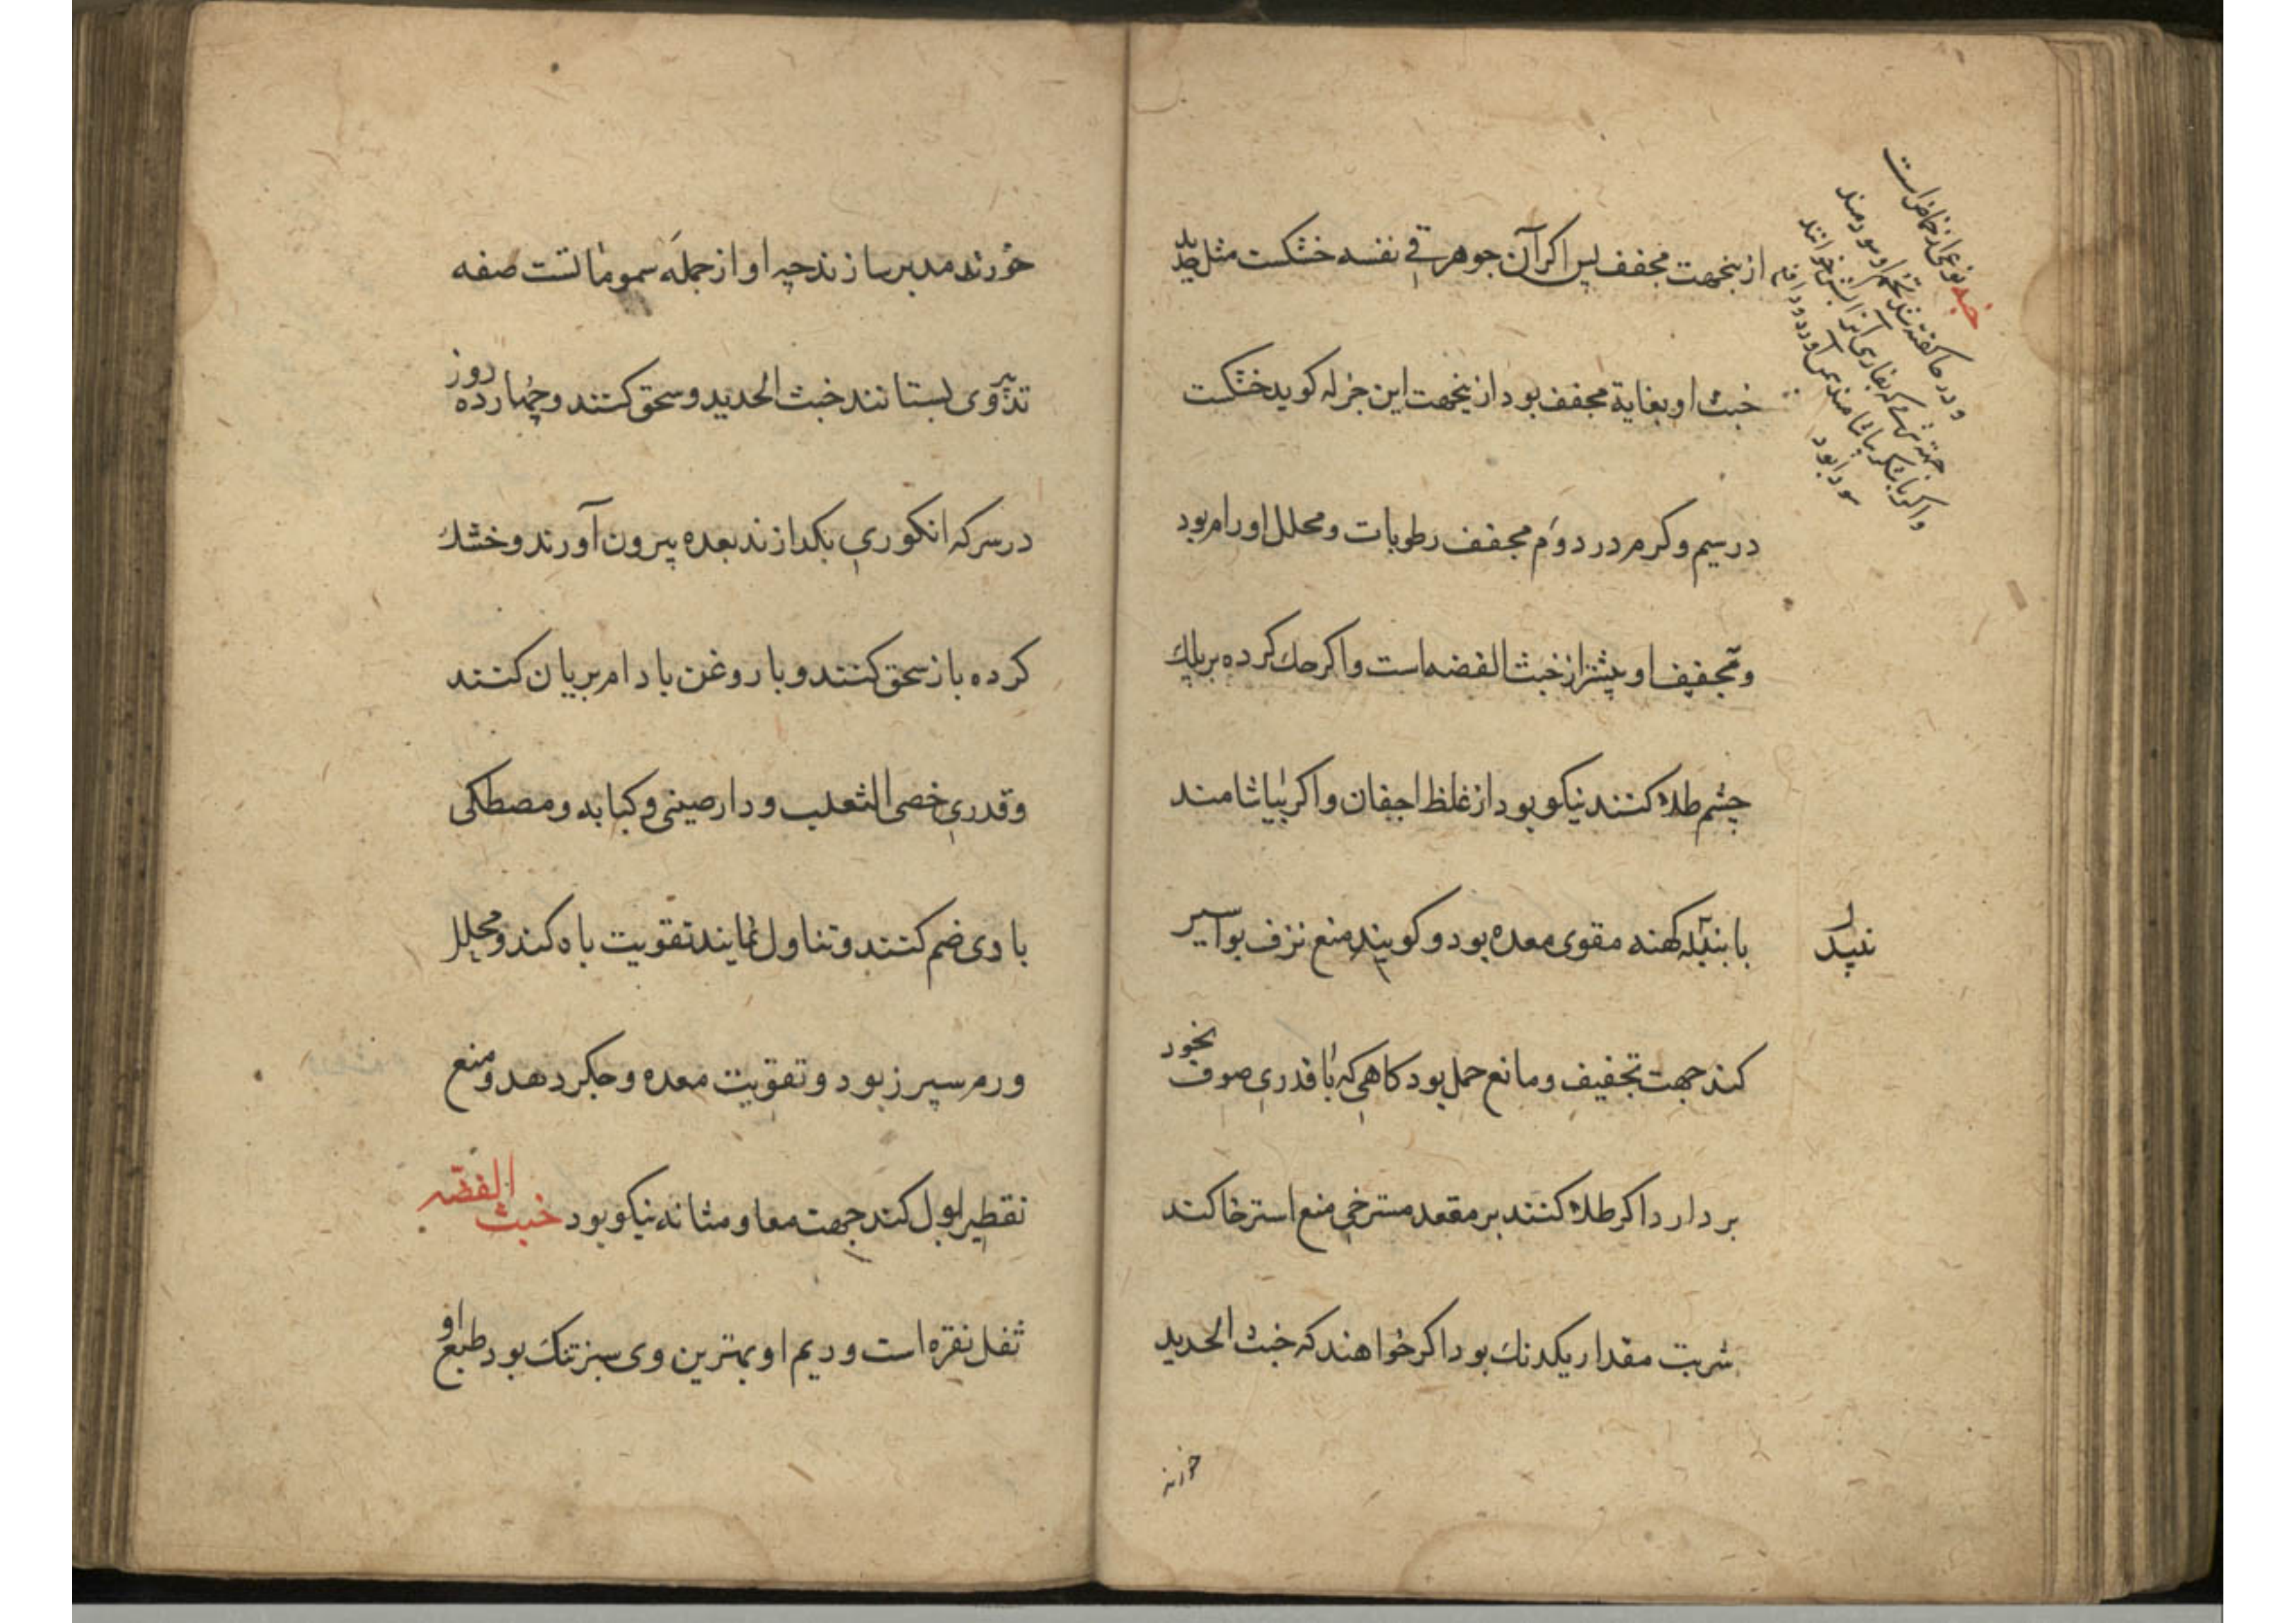 ازینجهت مجفف پس اکر آن جوهر فی نفسه خشکست مثل حدید
خبث او بغایة مجفف بود ازینجهت این جزله کوید خشکست
در سیم و کرم در دوم مجفف رطوبات و محلل اورام بود
و تجفیف او بیشتر از خبث الفضه است و اکر حك کرده بر پلك
چشم طلا کنند نیکو بود از غلظ اجفان و اکر بیاشامند
با بنبیله کهنه مقوی معده بود و کویند منع نزف بواسیر
نبید
کند جهت تجفیف و مانع حمل بود کاهی که با قدری صوف بخود
بردارد اکر طلا کنند بر مقعد مسترخی منع استرخا کند
شربت مقدار یکدنك بود اکر خواهند که خبث الحدید
خورند
نوعی از حماض است
سود بود
خورند مدبر سازند چه او از جمله سموماتست صفه
تدبیر وی بستانند خبث الحدید و سحق کنند و چهارده روز
در سرکه انکوری بکدازند بعده بیرون آورند و خشك
کرده باز سحق کنند و با روغن بادام بریان کنند
و قدری خصی الثعلب و دارصینی و کبابه و مصطکی
با وی ضم کنند و تناول نمایند تقویت باه کند و محلل
ورم سپرز بود و تقویت معده و جکر دهد و منع
تقطیر بول کند جهت معا و مثانه نیکو بود خبث الفضه
ثفل نقره است و ریم او بهترین وی سبز تنك بود طبع او